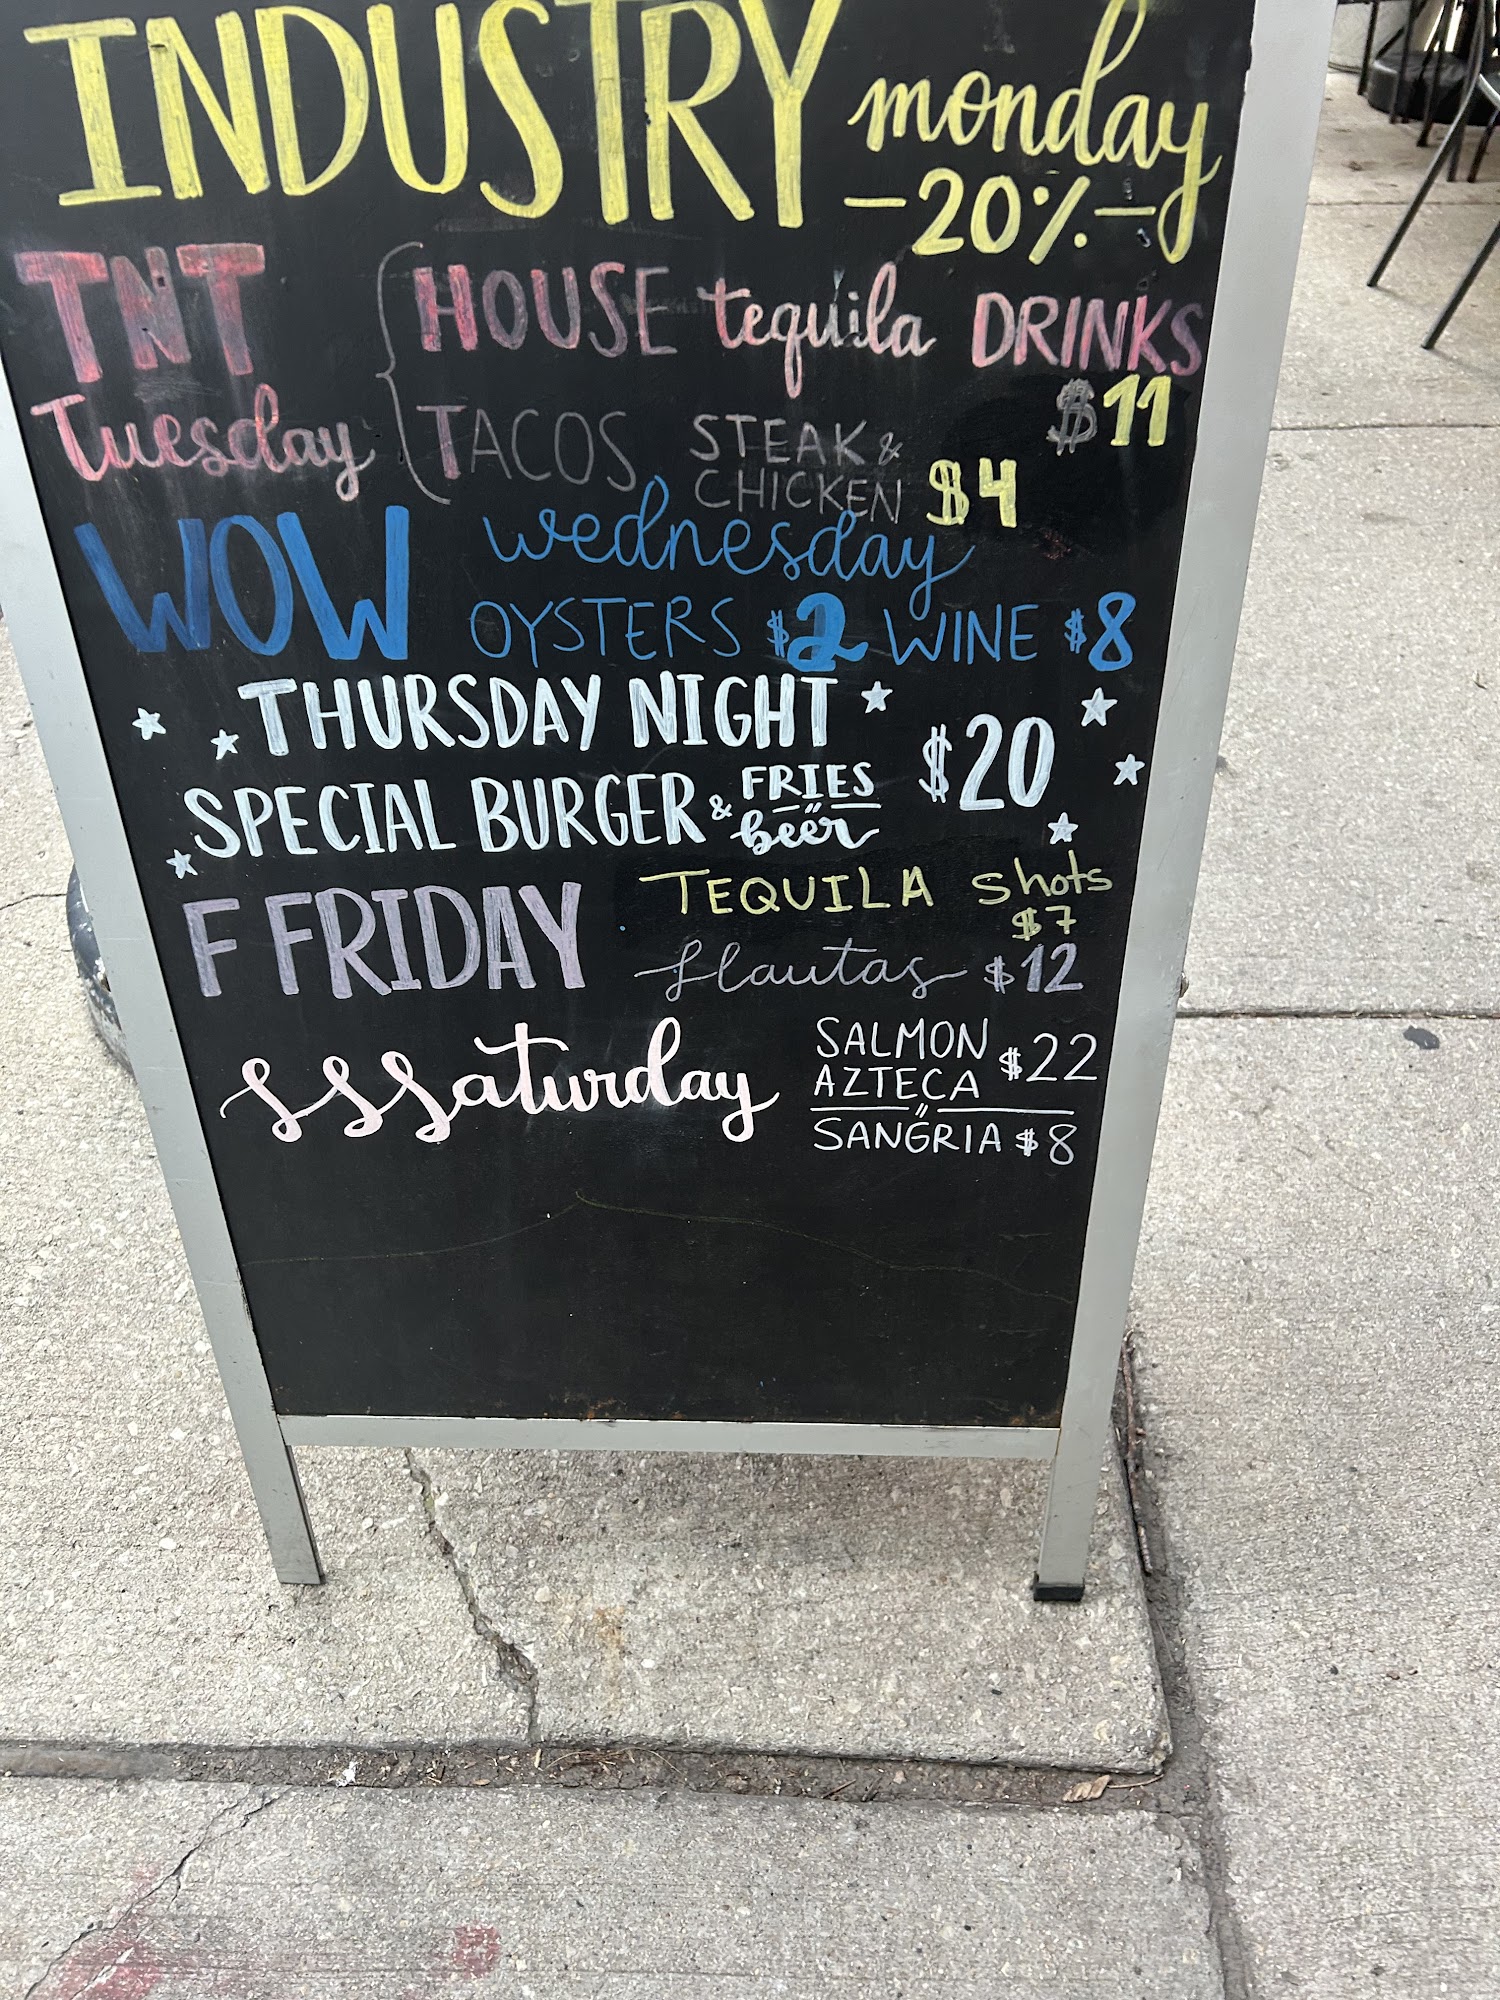 INDUSTRY monday
-20%-
TNT
Tuesday
HOUSE tequila DRINKS
$11
TACOS STEAK &
CHICKEN $4
WOW wednesday
OYSTERS $2 WINE $8
THURSDAY NIGHT
SPECIAL BURGER & FRIES
beer
$20
F FRIDAY
TEQUILA shots
$7
flautas $12
SSSaturday
SALMON
AZTECA $22
SANGRIA $8